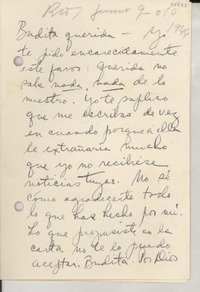 Río, junio 9
Budita querida — Yo
te pido encarecidamente
este favor: querida no
sabe nada, nada de lo
nuestro. Yo te suplico
que me escribas de vez
en cuando porque a ella
le extrañaría mucho
que yo no recibiese
noticias tuyas. No sé
cómo agradecerte todo
lo que has hecho por mí.
Lo que propusiste en la
carta no te lo puedo
aceptar. Budita. Por Dios